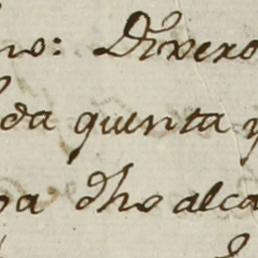 no: Dixero
da quenta y
pa dho alca